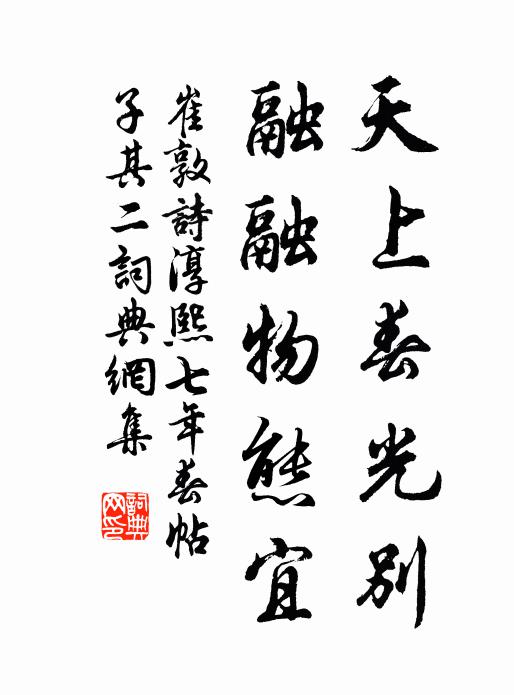 天上春光别
融融物態宜
崔敦詩淳熙七年春帖
子其二詞典網集
詞典
网印